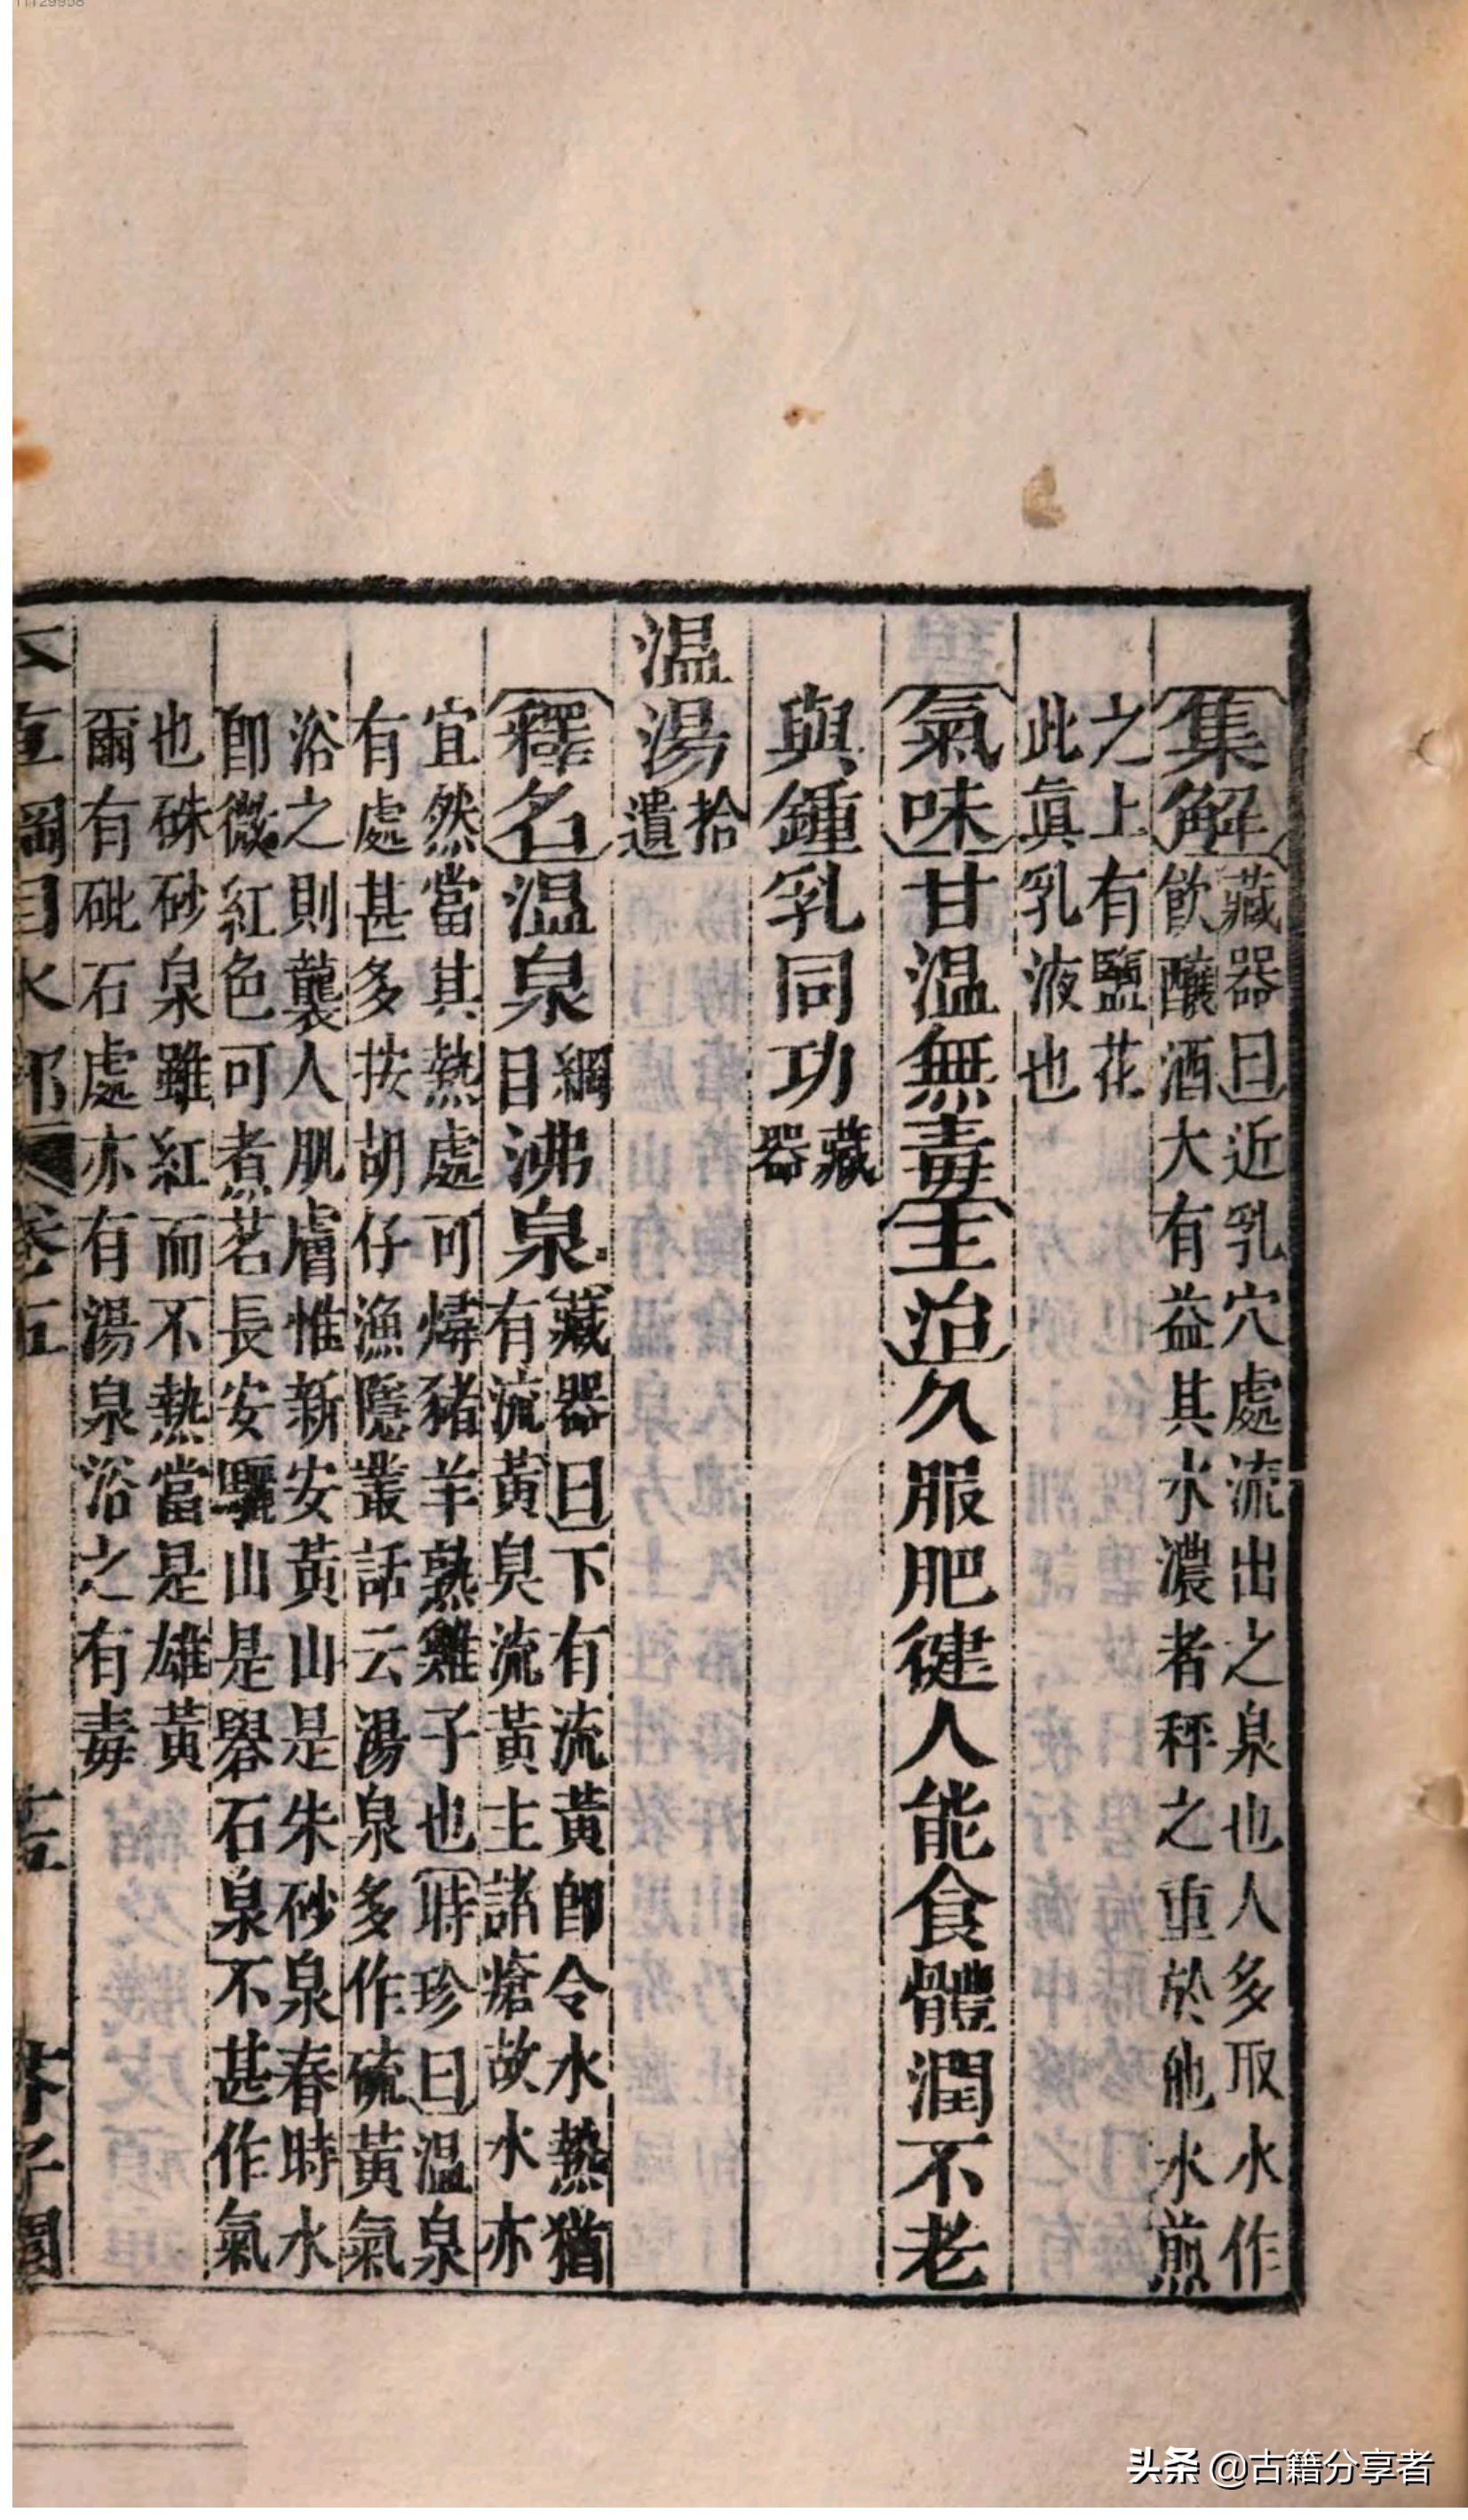 集解藏器曰近乳穴處流出之泉也人多取水作
飲釀酒大有益其水濃者秤之重於他水煎
之上有鹽花
此眞乳液也
氣味甘温無毒主治久服肥健人能食體潤不老
與鍾乳同功藏器
温湯拾遺
釋名温泉綱目沸泉藏器曰下有流黃卽令水熱猶
有流黃臭流黃主諸瘡故水亦
宜然當其熱處可燖猪羊熟雞子也時珍曰温泉
有處甚多按胡仔漁隱叢話云湯泉多作硫黃氣
浴之則襲人肌膚惟新安黃山是朱砂泉春時水
卽微紅色可煮茗長安驪山是礜石泉不甚作氣
也硃砂泉雖紅而不熱當是雄黃
爾有砒石處亦有湯泉浴之有毒
头条 @古籍分享者